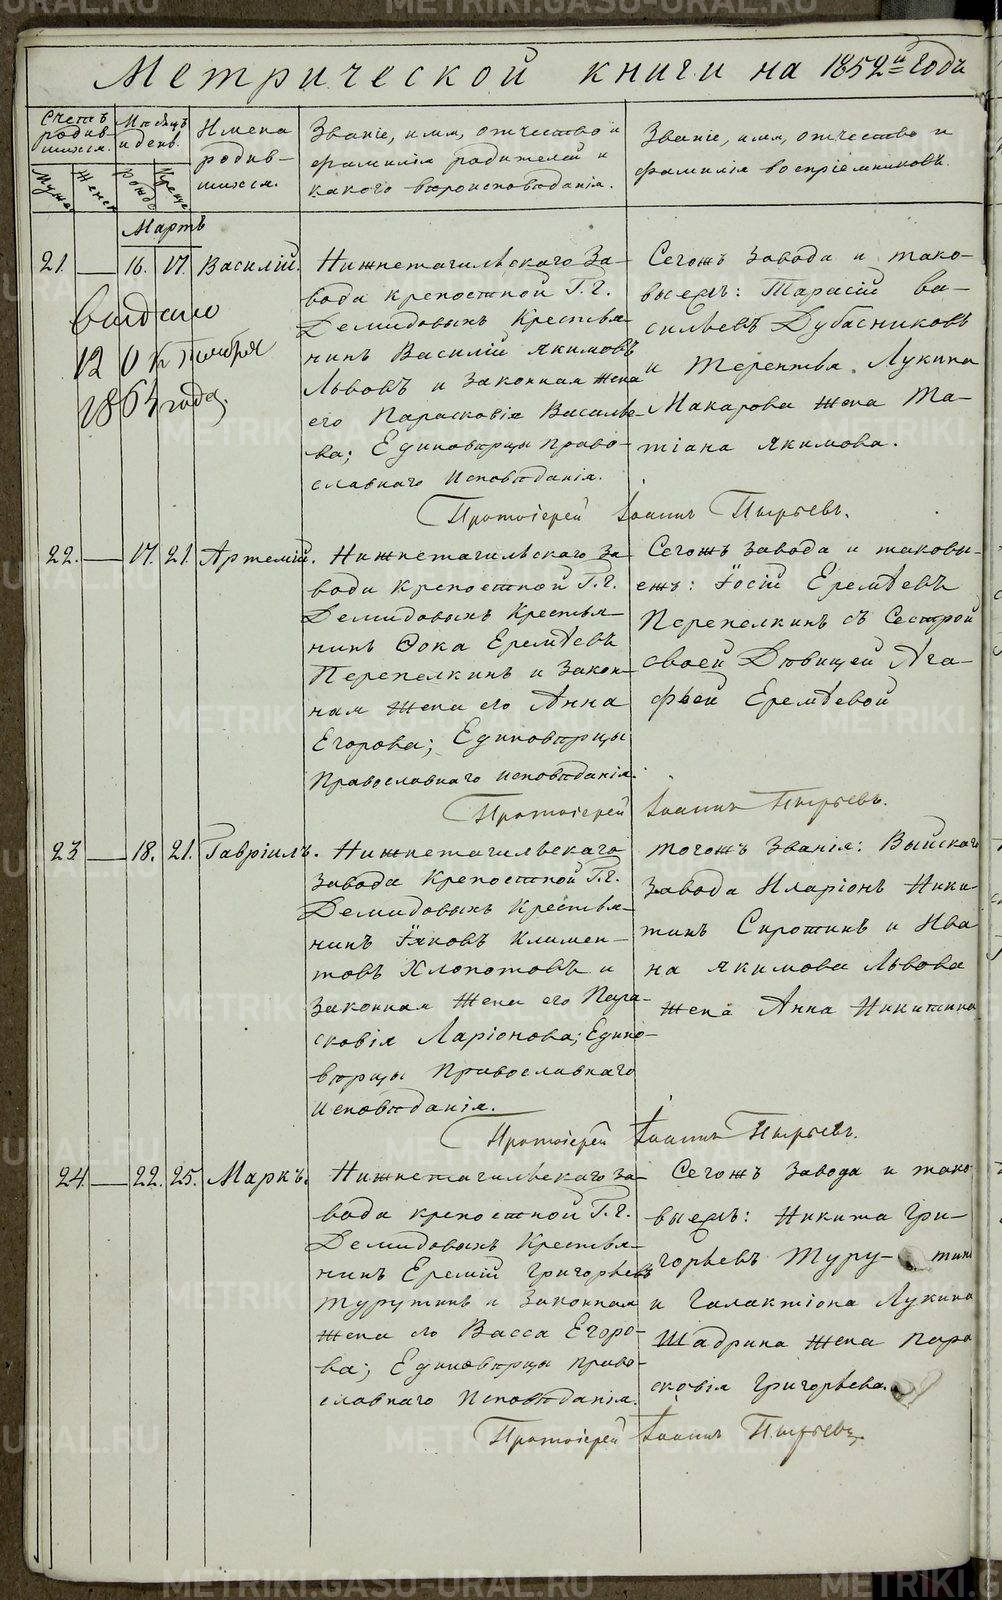 Метрической книги на 1852й годъ
Счетъ родив-шихся.
Мужес
Женск
Мѣсяцъ и день.
Рожд
Креще
Имена родив-шихся.
Званіе, имя, отчество и
фамилія родителей и
какого вѣроисповѣданія.
Званіе, имя, отчество и
фамилія воспріемниковъ.
Мартъ
21. 16. 17. Василій.
Нижнетагильскаго За-
вода крепостной Г.г.
Демидовыхъ Крестья-
нинъ Василій Якимовъ
Львовъ и законная жена
его Парасковія Василье-
ва; Единовѣрцы право-
славнаго Исповѣданія.
Сегожъ Завода и тако-
выежъ: Тарасій Ва-
сильевъ Дубасниковъ
и Терентья Лукина
Макарова жена Та-
тіана Якимова.
выдано
12 Октября
1864 года.
Протоіерей Іоаннъ Пырьевъ.
22. 17. 21. Артемій.
Нижнетагильскаго За-
вода Крепостной Г.г.
Демидовыхъ Крестья-
нинъ Фока Еремѣевъ
Перепелкинъ и Закон-
ная жена его Анна
Егорова; Единовѣрцы
Православнаго исповѣданія.
Сегожъ завода и таковы-
ежъ: Іосій Еремѣевъ
Перепелкинъ съ Сестрой
своей Дѣвицей Ага-
фьей Еремѣевой
Протоіерей Іоаннъ Пырьевъ.
23 18. 21. Гавріилъ.
Нижнетагильскаго
Завода Крепостной Г.г.
Демидовыхъ Крестья-
нинъ Іяковъ Климен-
товъ Хлопотовъ и
Законная Жена его Пара-
сковія Ларіонова; Едино-
вѣрцы Православнаго
Исповѣданія.
тогожъ Званія: Выйскаго
Завода Иларіонъ Ники-
тинъ Сиротинъ и Ива
на Якимова Львова
жена Анна Никитина
Протоіерей Іоаннъ Пырьевъ.
24. 22. 25. Маркъ.
Нижнетагильскаго за-
вода крепостной Г.г.
Демидовыхъ Крестья-
нинъ Еремій Григорьевъ
Турутинъ и Законная
жена его Васса Егоро-
ва; Единовѣрцы право-
славнаго Исповѣданія.
Сегожъ Завода и тако
выежъ: Никита Гри-
горьевъ Туру- тинъ
и Галактіона Лукина
Шадрина жена Пара
сковія Григорьева.
Протоіерей Іоаннъ Пырьевъ.
METRIKI.GASO-URAL.RU